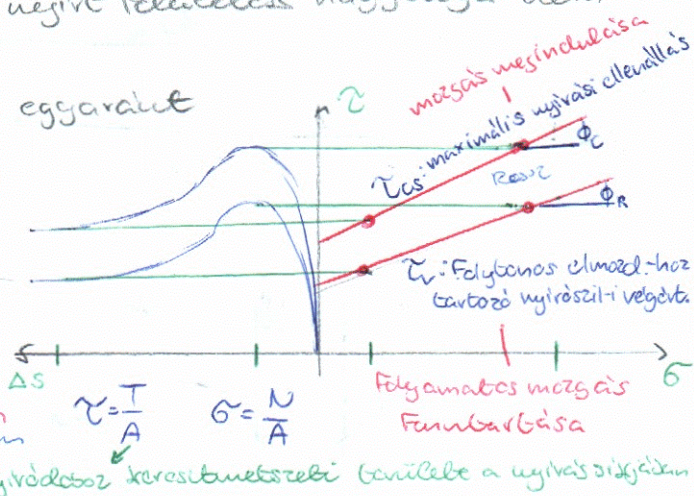 nyírt felületen
egyaránt
τ
mozgás megindulása
τcs: maximális nyírási ellenállás
ϕC
ϕR
τv: Folytonos elmozd.-hoz
tartozó nyírószil-i végért.
Δs
σ
τ = T/A
σ = N/A
Folyamatos mozgás
Fenntartása
keresztmetszeti területe a nyírás síkjában